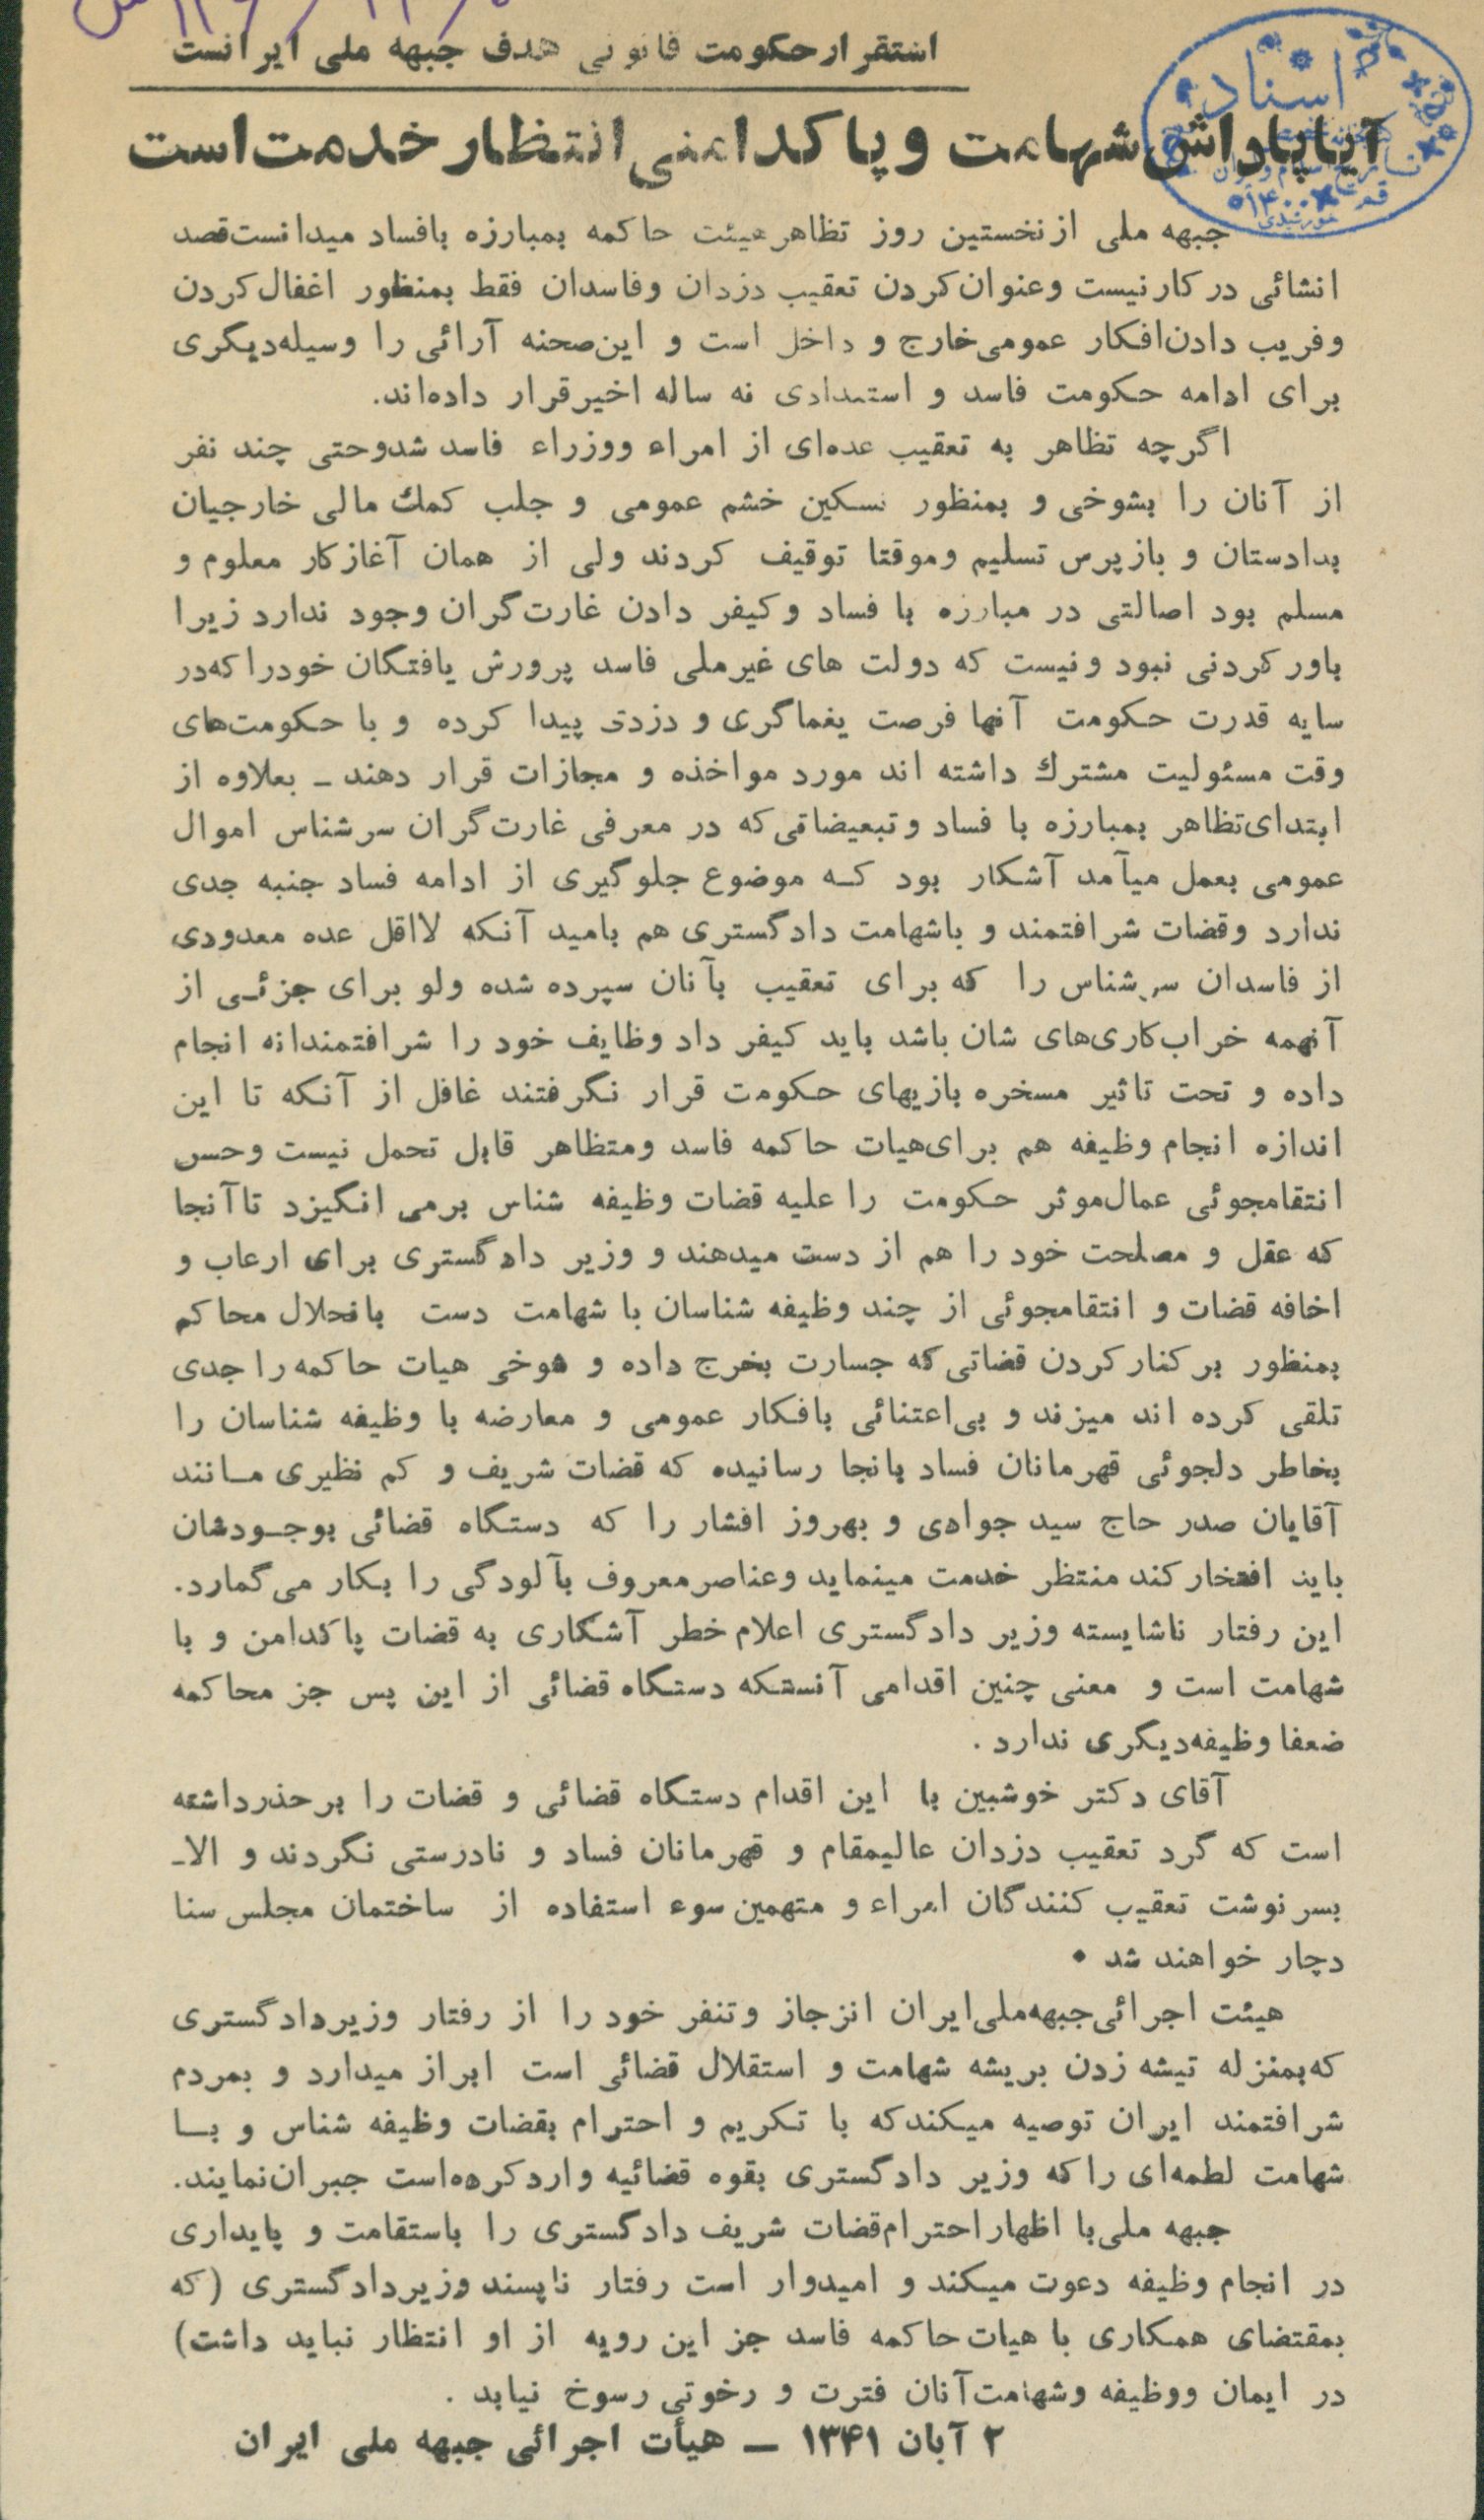 استقرار حکومت قانونی هدف جبهه ملی ایرانست
اسناد
آیا پاداش شهامت و پاکدامنی انتظار خدمت است
جبهه ملی از نخستین روز تظاهر هیئت حاکمه بمبارزه بافساد میدانست قصد
انشائی در کار نیست وعنوان کردن تعقیب دزدان وفاسدان فقط بمنظور اغفال کردن
وفریب دادن افکار عمومی خارج و داخل است و این صحنه آرائی را وسیله دیگری
برای ادامه حکومت فاسد و استبدادی نه ساله اخیر قرار داده‌اند.
اگرچه تظاهر به تعقیب عده‌ای از امراء ووزراء فاسد شد وحتی چند نفر
از آنان را بشوخی و بمنظور تسکین خشم عمومی و جلب کمك مالی خارجیان
بدادستان و بازپرس تسلیم وموقتا توقیف کردند ولی از همان آغاز کار معلوم و
مسلم بود اصالتی در مبارزه با فساد و کیفر دادن غارت‌گران وجود ندارد زیرا
باور کردنی نبود و نیست که دولت های غیرملی فاسد پرورش یافتگان خودرا که در
سایه قدرت حکومت آنها فرصت یغماگری و دزدی پیدا کرده و با حکومت‌های
وقت مسئولیت مشترك داشته اند مورد مواخذه و مجازات قرار دهند ـ بعلاوه از
ابتدای تظاهر بمبارزه با فساد و تبعیضاتی که در معرفی غارت‌گران سرشناس اموال
عمومی بعمل میآمد آشکار بود کـه موضوع جلوگیری از ادامه فساد جنبه جدی
ندارد و قضات شرافتمند و باشهامت دادگستری هم بامید آنکه لااقل عده معدودی
از فاسدان سرشناس را که برای تعقیب بآنان سپرده شده ولو برای جزئـی از
آنهمه خراب‌کاری‌های شان باشد باید کیفر داد وظایف خود را شرافتمندانه انجام
داده و تحت تاثیر مسخره بازیهای حکومت قرار نگرفتند غافل از آنکه تا این
اندازه انجام وظیفه هم برای هیات حاکمه فاسد ومتظاهر قابل تحمل نیست وحس
انتقامجوئی عمال موثر حکومت را علیه قضات وظیفه شناس برمی انگیزد تا آنجا
که عقل و مصلحت خود را هم از دست میدهند و وزیر دادگستری برای ارعاب و
اخافه قضات و انتقامجوئی از چند وظیفه شناسان با شهامت دست بانحلال محاکم
بمنظور برکنار کردن قضاتی که جسارت بخرج داده و شوخی هیات حاکمه را جدی
تلقی کرده اند میزند و بی‌اعتنائی بافکار عمومی و معارضه با وظیفه شناسان را
بخاطر دلجوئی قهرمانان فساد بانجا رسانیده که قضات شریف و کم نظیری مـانند
آقایان صدر حاج سید جوادی و بهروز افشار را که دستگاه قضائی بوجـودشان
باید افتخار کند منتظر خدمت مینماید وعناصر معروف بآلودگی را بکار می‌گمارد.
این رفتار ناشایسته وزیر دادگستری اعلام خطر آشکاری به قضات پاکدامن و با
شهامت است و معنی چنین اقدامی آنستکه دستگاه قضائی از این پس جز محاکمه
ضعفا وظیفه دیگری ندارد .
آقای دکتر خوشبین با این اقدام دستگاه قضائی و قضات را برحذر داشته
است که گرد تعقیب دزدان عالیمقام و قهرمانان فساد و نادرستی نگردند و الاـ
بسرنوشت تعقیب کنندگان امراء و متهمین سوء استفاده از ساختمان مجلس سنا
دچار خواهند شد .
هیئت اجرائی جبهه ملی ایران انزجاز و تنفر خود را از رفتار وزیر دادگستری
که بمنزله تیشه زدن بریشه شهامت و استقلال قضائی است ابراز میدارد و بمردم
شرافتمند ایران توصیه میکند که با تکریم و احترام بقضات وظیفه شناس و بـا
شهامت لطمه‌ای را که وزیر دادگستری بقوه قضائیه وارد کرده‌است جبران نمایند.
جبهه ملی با اظهار احترام قضات شریف دادگستری را باستقامت و پایداری
در انجام وظیفه دعوت میکند و امیدوار است رفتار ناپسند وزیر دادگستری (که
بمقتضای همکاری با هیات حاکمه فاسد جز این رویه از او انتظار نباید داشت)
در ایمان ووظیفه وشهامت آنان فترت و رخوتی رسوخ نیابد .
۲ آبان ۱۳۴۱ ـ هیأت اجرائی جبهه ملی ایران